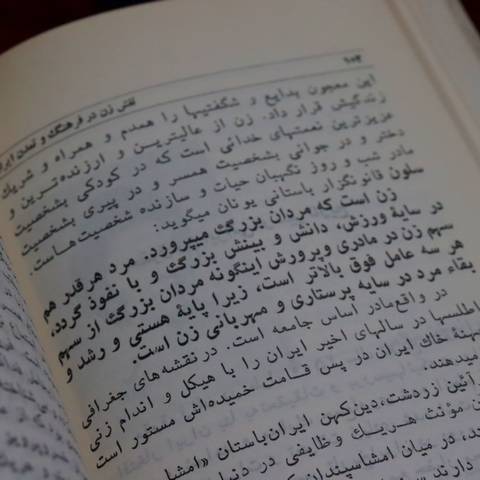 ۱۰۲
نقش زن در فرهنگ و تمدن ایران
این معجون بدایع و شگفتیها را همدم و همراه و شریك
زندگیش قرار داد. زن از عالیترین و ارزنده‌ترین و
عزیزترین نعمتهای خدائی است که در کودکی بشخصیت
دختر و در جوانی بشخصیت همسر و در پیری بشخصیت
مادر شب و روز نگهبان حیات و سازنده شخصیت‌هاست.
سلون قانونگزار باستانی یونان میگوید:
زن است که مردان بزرگ میپرورد. مرد هر قدر هم
در سایهٔ ورزش، دانش و بینش بزرگ و با نفوذ گردد،
سهم زن در مادری و پرورش اینگونه مردان بزرگ از سهم
هر سه عامل فوق بالاتر است، زیرا پایهٔ هستی و رشد و
بقاء مرد در سایه پرستاری و مهربانی زن است.
در واقع مادر اساس جامعه است. در نقشه‌های جغرافی
اطلسها در سالهای اخیر ایران را با هیکل و اندام زنی
پهنهٔ خاك ایران در پس قامت خمیده‌اش مستور است
میدهند.
آئین زردشت، دین کهن ایران باستان «امشا
مؤنث هریك وظایفی در دنیا
در میان امشاسپندان
دارند